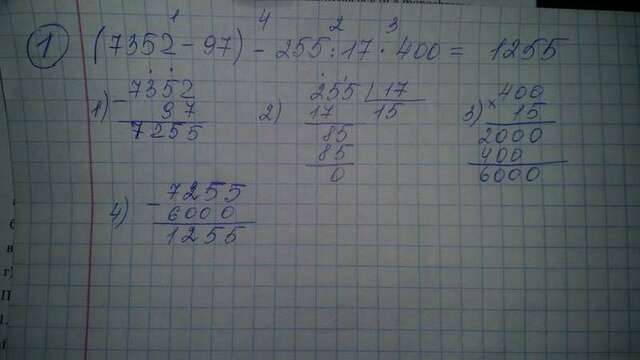 1 4 2 3
1 (7352 - 97) - 255 : 17 · 400 = 1255
1) - 7352
97
7255
2) 255 | 17
17 15
85
85
0
3) × 400
15
2000
400
6000
4) - 7255
6000
1255